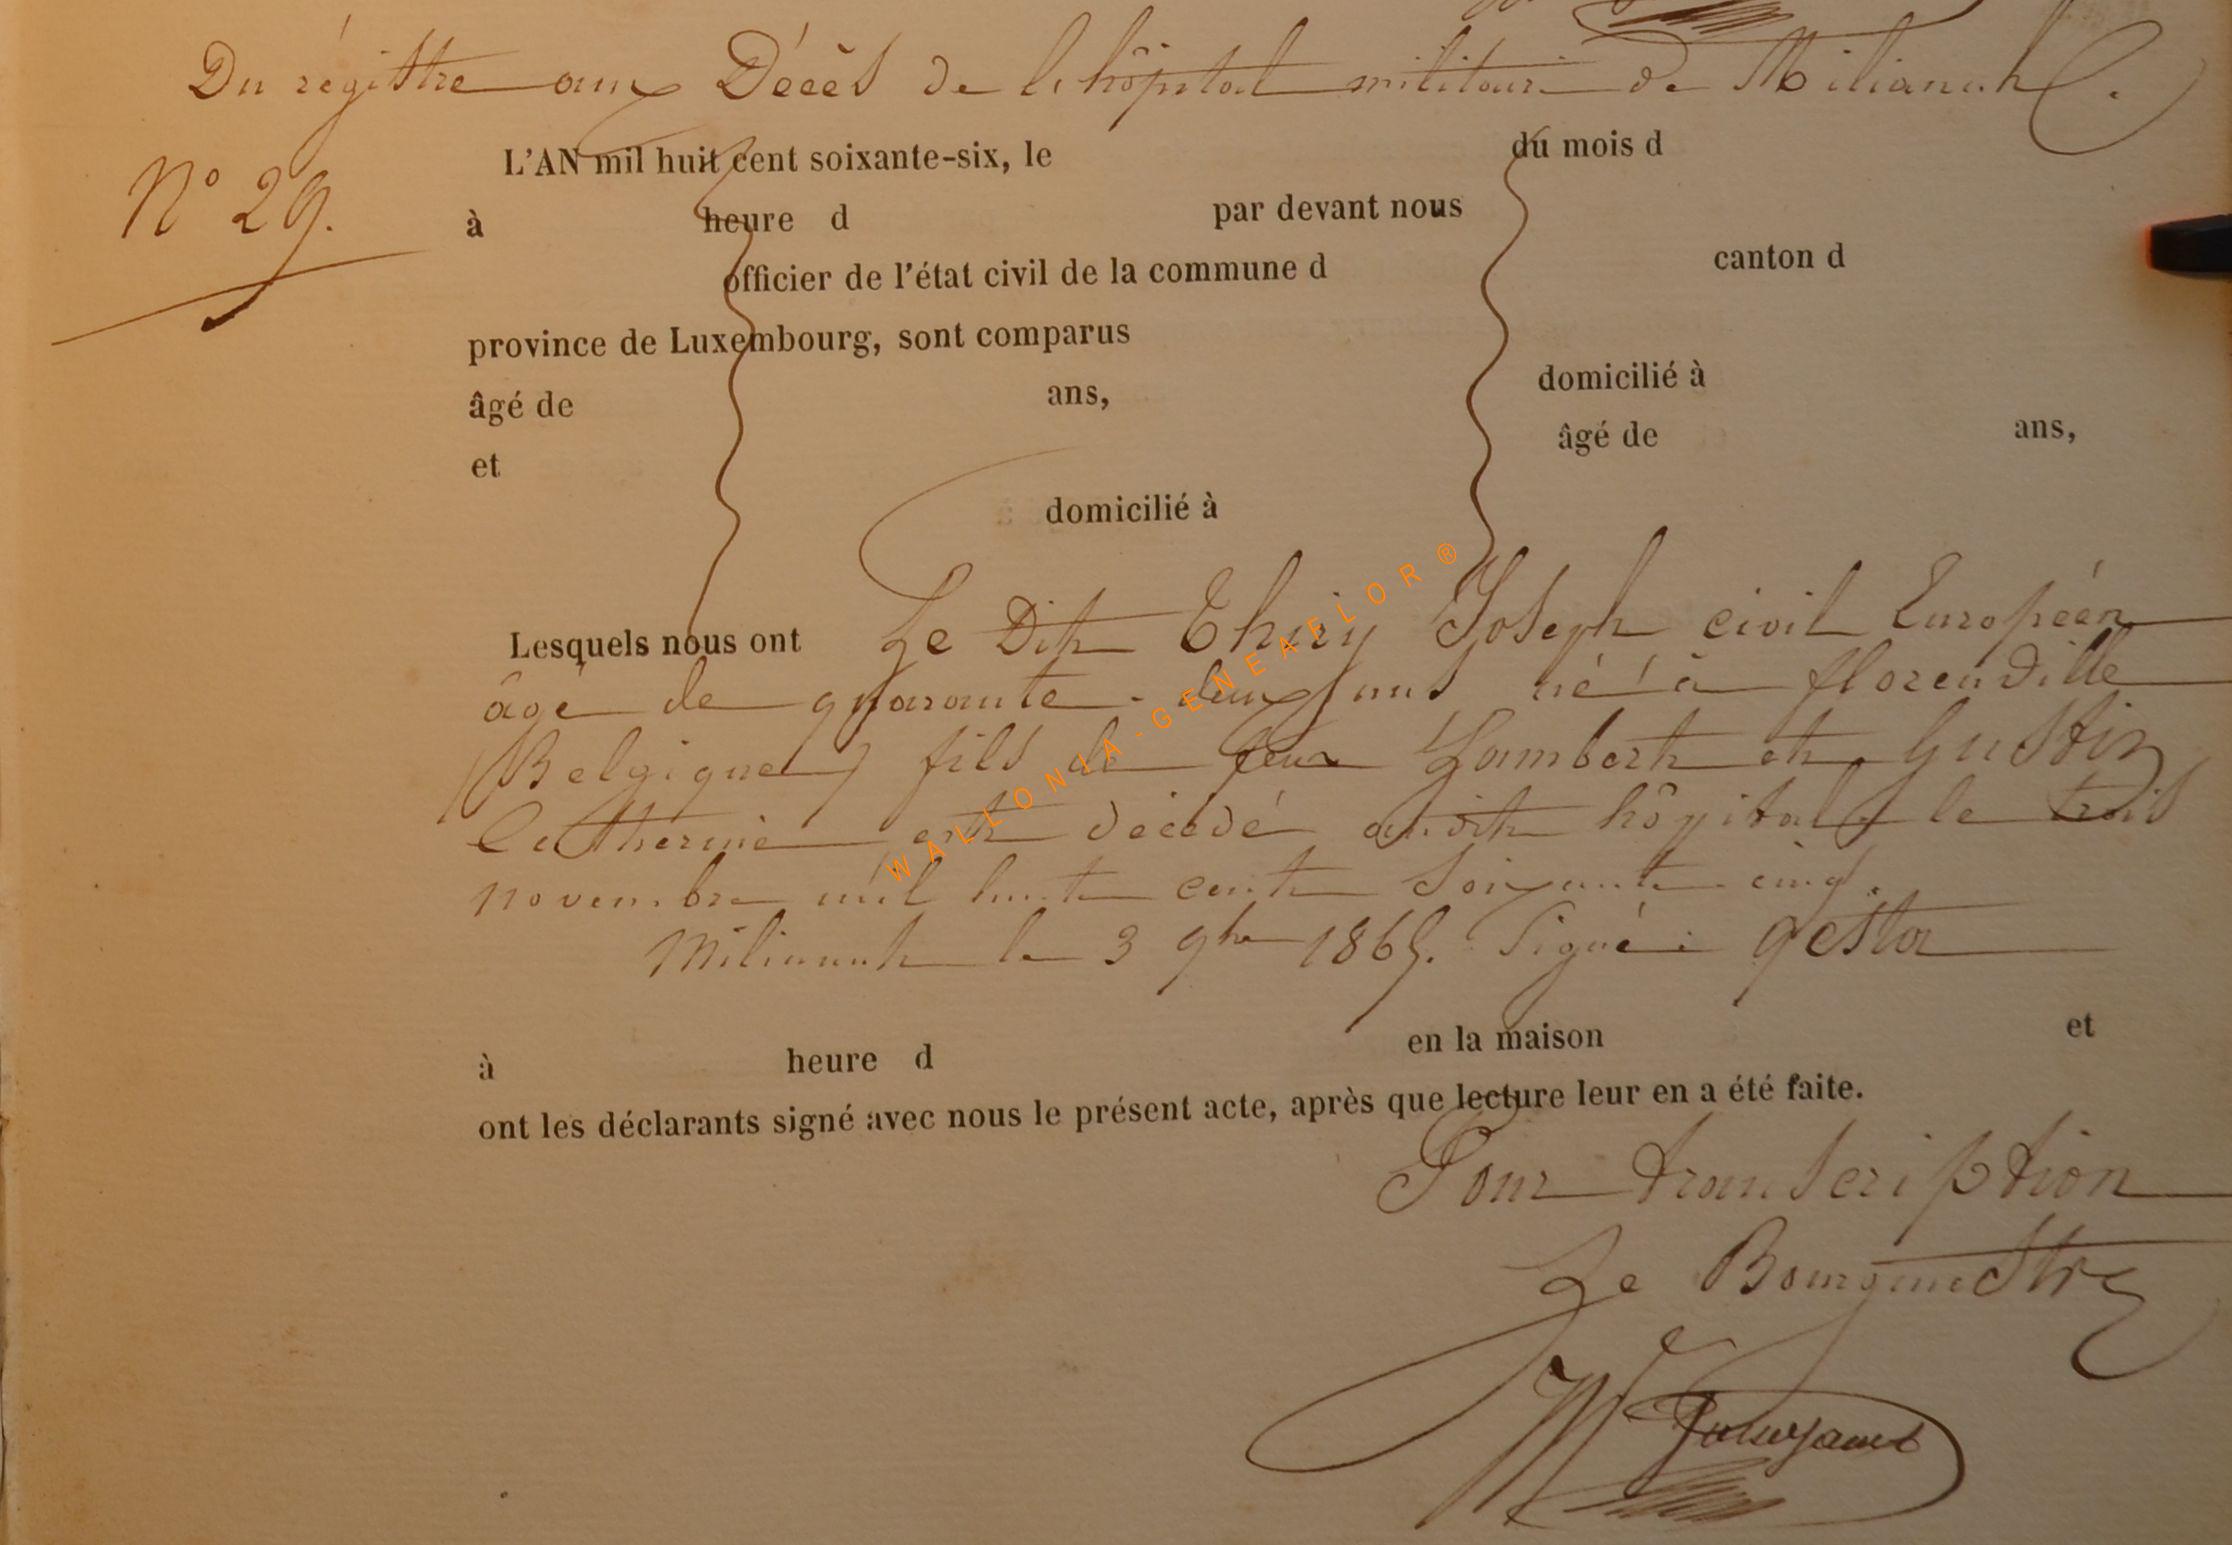 Du régistre aux Décès de l'hôpital militaire de Milianah.
N° 29.
L'AN mil huit cent soixante-six, le du mois d
à heure d par devant nous
officier de l'état civil de la commune d canton d
province de Luxembourg, sont comparus
âgé de ans, domicilié à
et âgé de ans,
domicilié à
Lesquels nous ont Le Dit Thiry Joseph civil Européen
âgé de quarante-deux ans né à florenville
(Belgique) fils de feux Lambert et Gustin
Catherine est décédé au dit hôpital le trois
novembre mil huit cent soixante cinq.
Milianah le 3 9bre 1865. Signé: Gesta
à heure d en la maison et
ont les déclarants signé avec nous le présent acte, après que lecture leur en a été faite.
Pour transcription
Le Bourgmestre
WALLONIA-GENEAFLOR®